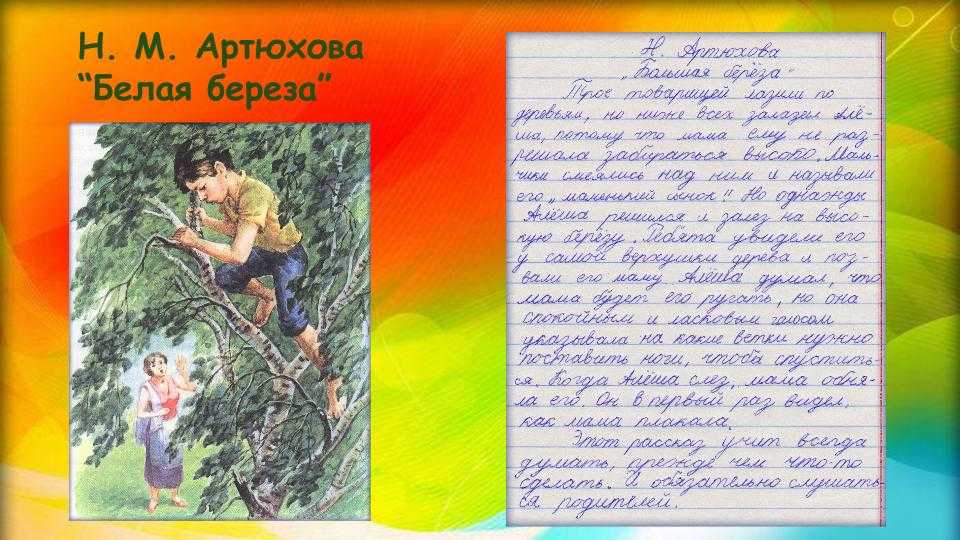 Н. М. Артюхова
“Белая береза”
Н. Артюхова
„Большая берёза“
Трое товарищей лазили по
деревьям, но ниже всех залазел Алё-
ша, потому что мама ему не раз-
решала забираться высоко. Маль-
чики смеялись над ним и называли
его „маленький сынок“! Но однажды
Алёша решился и залез на высо-
кую берёзу. Ребята увидели его
у самой верхушки дерева и поз-
вали его маму. Алёша думал, что
мама будет его ругать, но она
спокойным и ласковым голосом
указывала на какие ветки нужно
поставить ноги, чтоба спустить-
ся. Когда Алёша слез, мама обня-
ла его. Он в первый раз видел,
как мама плакала.
Этот рассказ учит всегда
думать, прежде чем что-то
сделать. И обязательно слушать-
ся родителей.